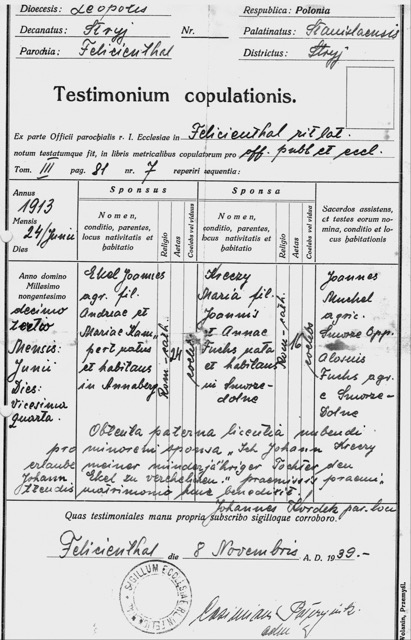 Dioecesis: Leopolis Respublica: Polonia
Decanatus: Stryj Nr. Palatinatus: Stanislaensis
Parochia: Felicienthal Districtus: Stryj
Testimonium copulationis.
Ex parte Officii parochialis r. l. Ecclesiae in Felicienthal rit lat.
notum testatumque fit, in libris metricalibus copulatorum pro off. publ et eccl.
Tom. III pag. 81 nr. 7 reperiri sequentia:
Annus
1913
Mensis
24/Junii
Dies
Sponsus
Nomen,
conditio, parentes,
locus nativitatis et
habitatio
Religio
Aetas
Coelebs vel viduus
Sponsa
Nomen,
conditio, parentes,
locus nativitatis et
habitatio
Religio
Aetas
Coelebs vel vidua
Sacerdos assistens,
et testes eorum no-
mina, conditio et lo-
cus habitationis
Anno domino
Millesimo
nongentesimo
decimo
tertio
Mensis:
Junii
Dies:
vicesima
quarta.
Ekel Joannes
agr. fil.
Andreae et
Mariae Kam
pert natus
et habitans
in Annaberg
Rom-cath.
24
coelebs
Kreczy
Maria fil.
Joannis
et Annae
Fuchs nata
et habitans
in Smorze-
dolne
Rom-cath.
16
coelebs
Joannes
Munkel
agric.
Smorze Opp.
Aloisius
Fuchs agr.
e Smorze-
Dolne
Obtenta paterna licentia nubendi
pro minoreni sponsa "Ich Johann Kreczy
erlaube meiner minderjähriger Tochter den
Johann Ekel zu verehelichen." praemissis praemi
ttendis matrimonio hunc benedixit.
Johannes Hordek par. loci
Quas testimoniales manu propria subscribo sigilloque corroboro.
Felicienthal die 8 Novembris A. D. 1939.-
SIGILLUM ECCLESIAE
Casimirus
adm